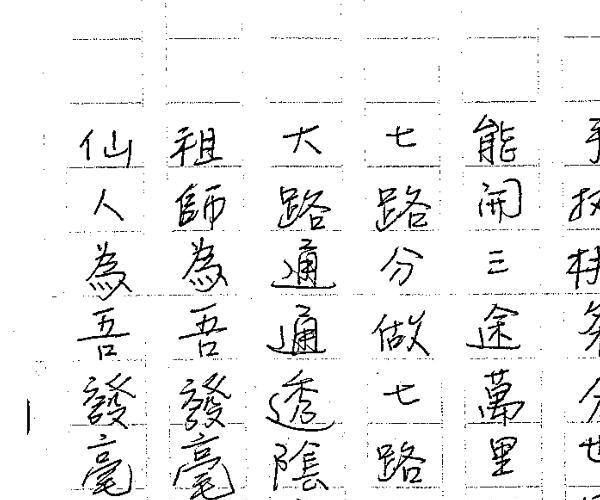 能開三途萬里
七路分做七路
大路通通透陰
祖師為吾發毫
仙人為吾發毫